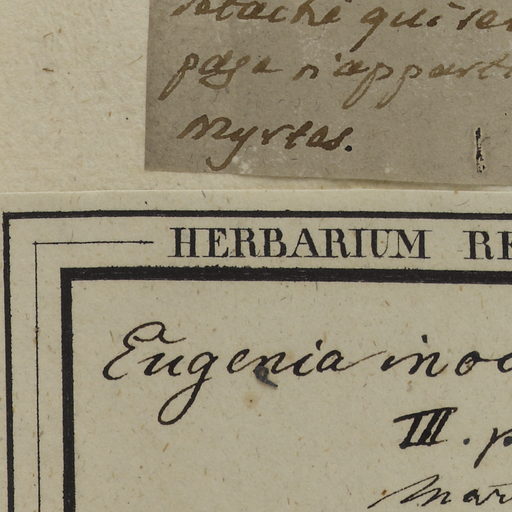 détaché qui se
page n'appart
Myrtes.
HERBARIUM RE
Eugenia inoc
III. p
Mar